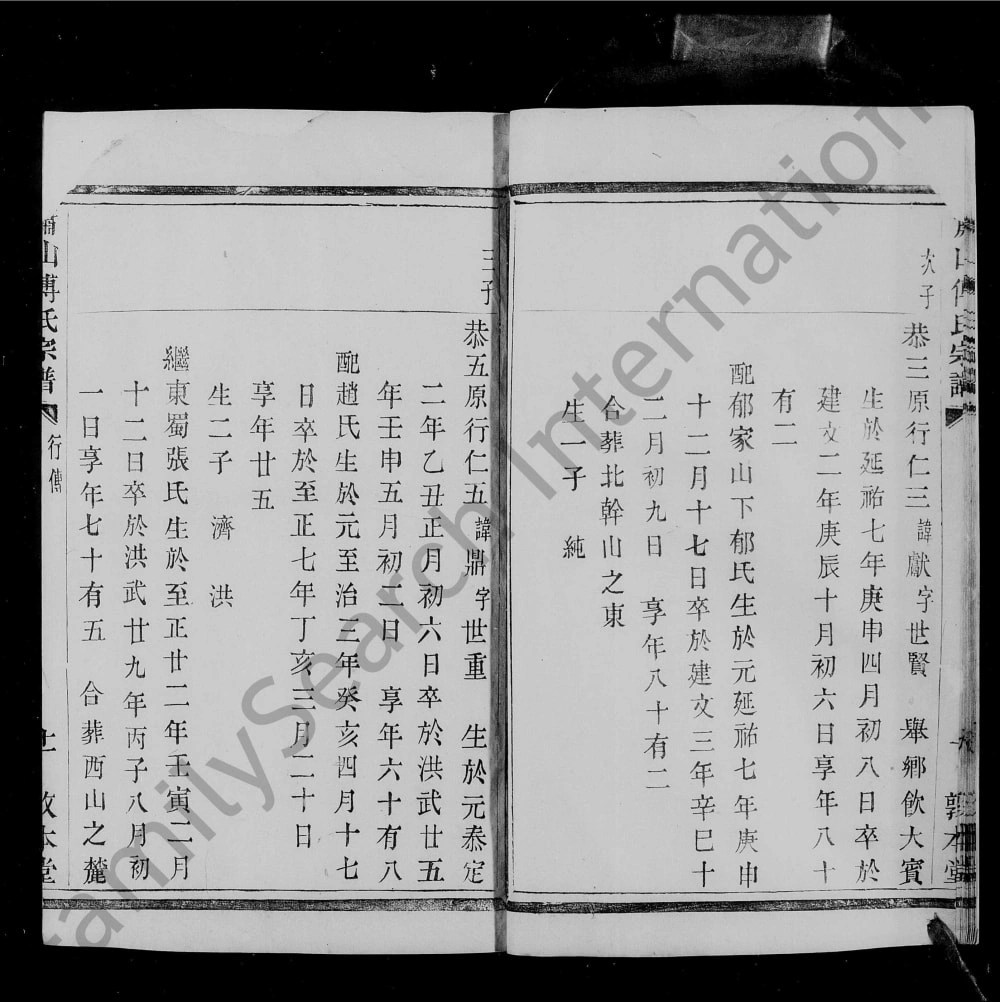 次子
恭三原行仁三諱獻字世賢 舉鄉飲大賓
生於延祐七年庚申四月初八日卒於
建文二年庚辰十月初六日享年八十
有二
配郁家山下郁氏生於元延祐七年庚申
十二月十七日卒於建文三年辛巳十
二月初九日 享年八十有二
合葬北幹山之東
生一子 純
三子
恭五原行仁五諱鼎字世重 生於元泰定
二年乙丑正月初六日卒於洪武廿五
年壬申五月初二日 享年六十有八
配趙氏生於元至治三年癸亥四月十七
日卒於至正七年丁亥三月二十日
享年廿五
生二子 濟 洪
繼東蜀張氏生於至正廿二年壬寅二月
十二日卒於洪武廿九年丙子八月初
一日享年七十有五 合葬西山之麓
山傅氏宗譜
行傳
敦本堂
FamilySearch International